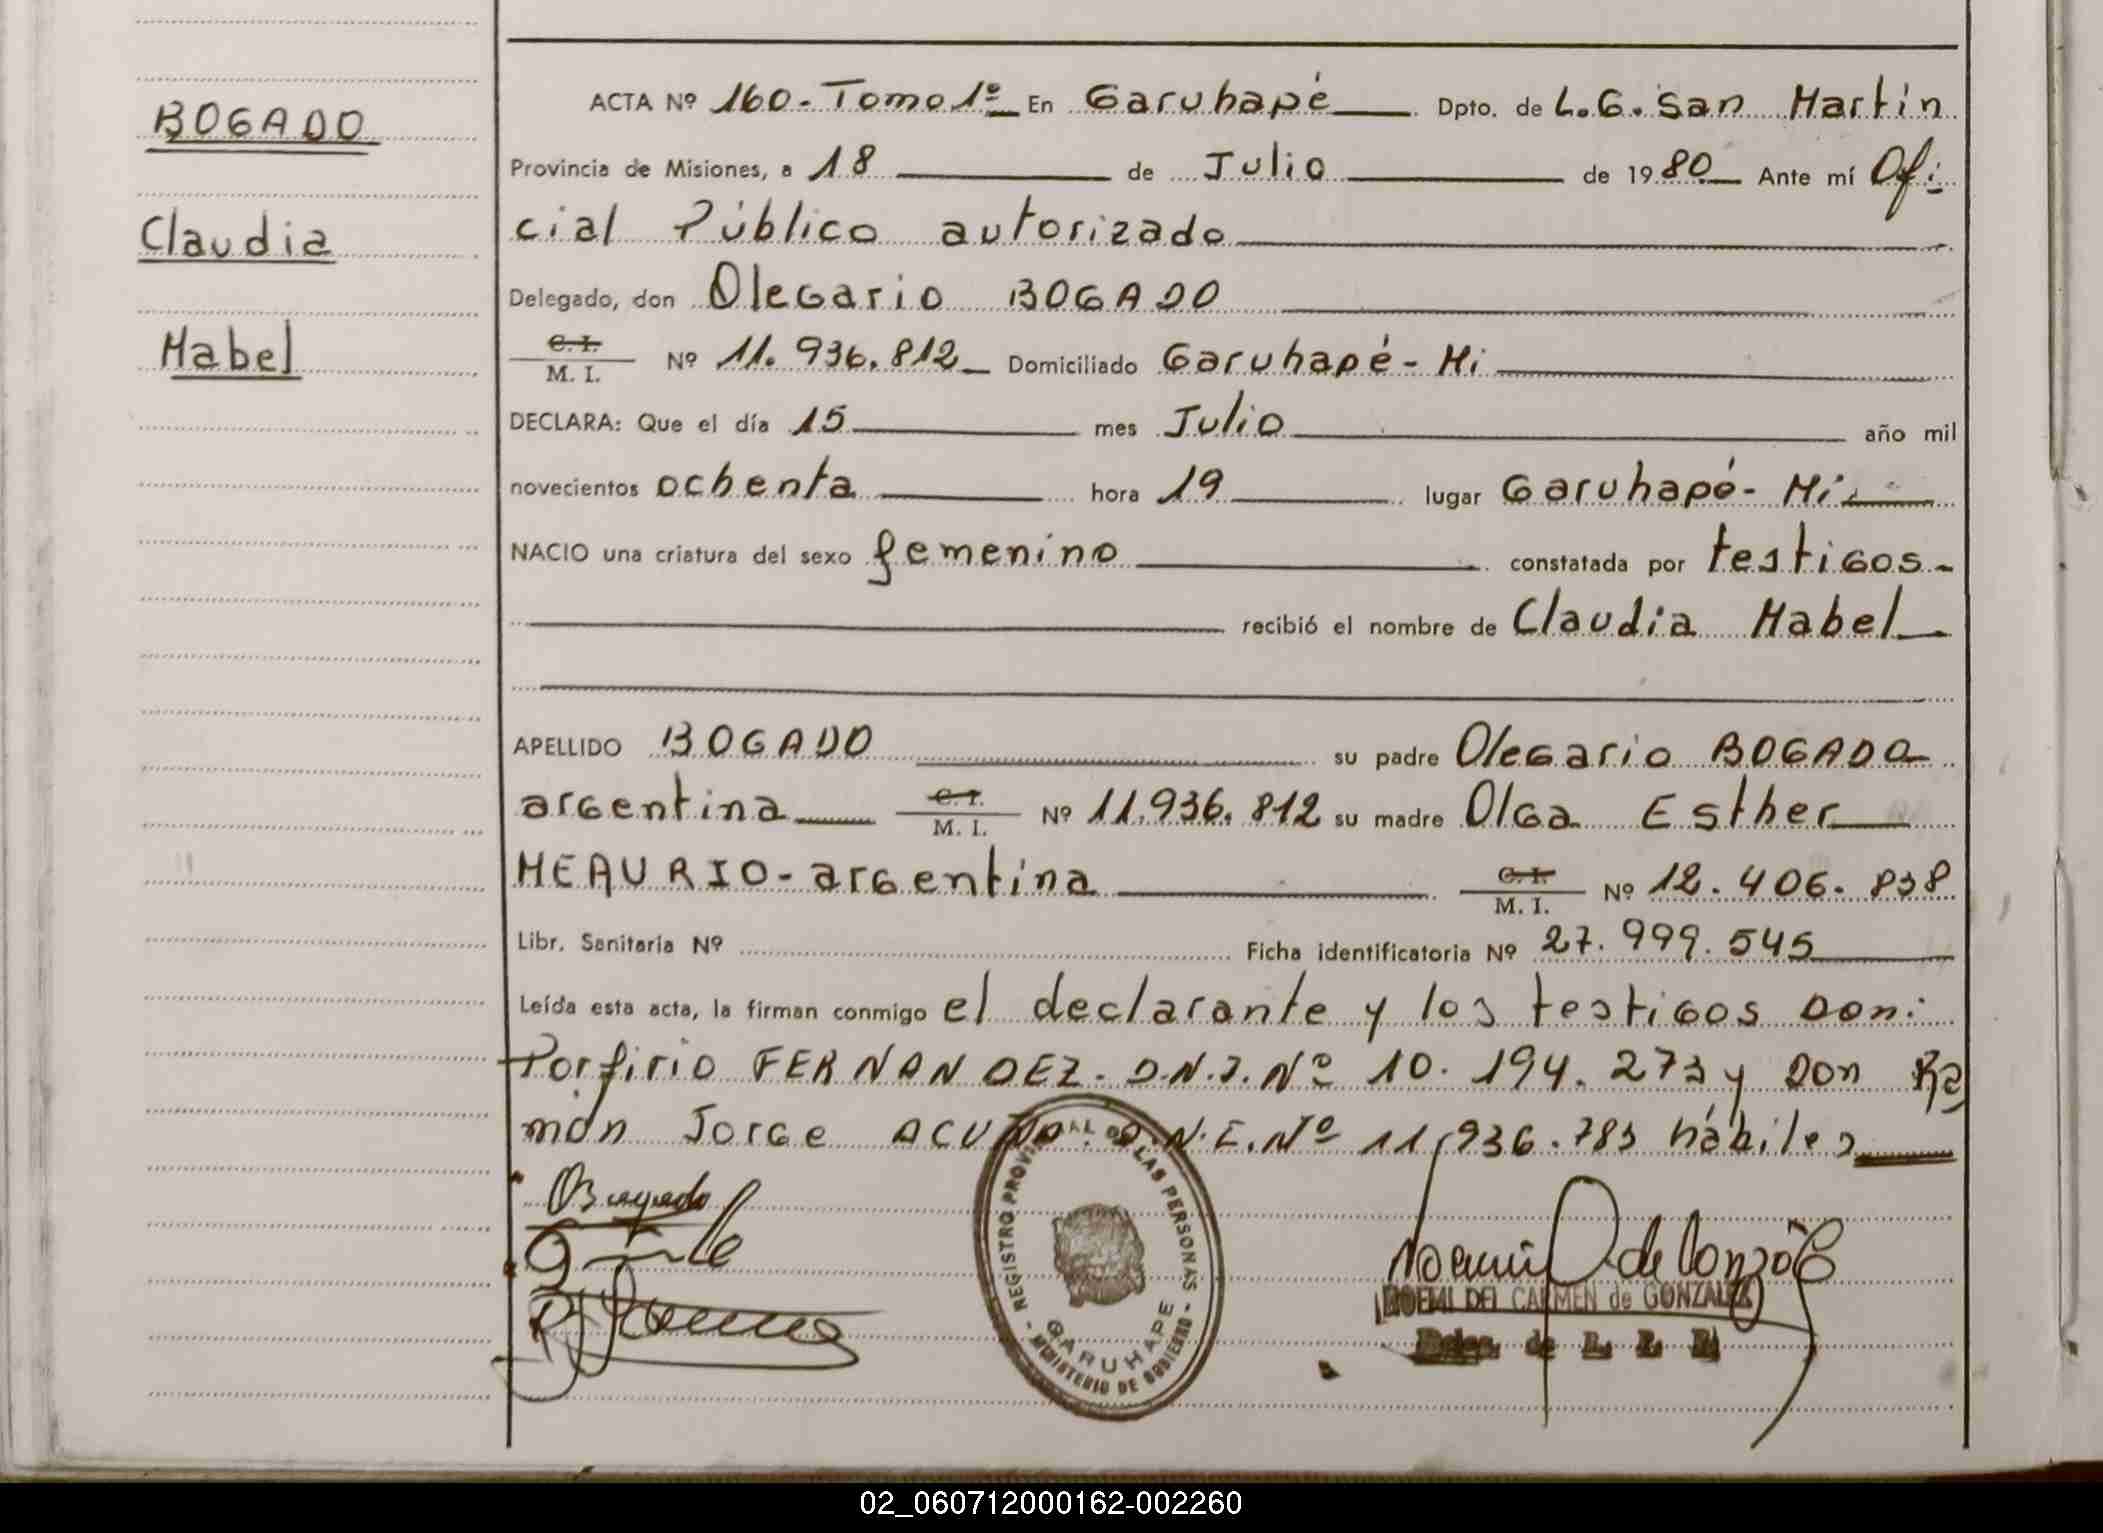 BOGADO
Claudia
Mabel
ACTA Nº 160.-Tomo 1º En Garuhapé Dpto. de L.G. San Martín
Provincia de Misiones, a 18 de Julio de 1980 Ante mí Ofi
cial Público autorizado
Delegado, don Olegario BOGADO
C. I.
M. I. Nº 11.936.812 Domiciliado Garuhapé - Mi
DECLARA: Que el día 15 mes Julio año mil
novecientos ochenta hora 19 lugar Garuhapé - Mi
NACIO una criatura del sexo femenino constatada por testigos
recibió el nombre de Claudia Mabel
APELLIDO BOGADO su padre Olegario BOGADO
argentina C. I. M. I. Nº 11.936.812 su madre Olga Esther
MEAURIO - argentina C. I. M. I. Nº 12.406.838
Libr. Sanitaria Nº Ficha identificatoria Nº 27.999.545
Leída esta acta, la firman conmigo el declarante y los testigos Don:
Porfirio FERNANDEZ. D.N.I. Nº 10.194.273 y Don Ra
món Jorge ACUÑA. D.N.I. Nº 11.936.783 hábiles
Bogado
REGISTRO PROVINCIAL DE LAS PERSONAS
GARUHAPE
- MINISTERIO DE GOBIERNO -
NOEMI DEL CARMEN de GONZALEZ
02_060712000162-002260